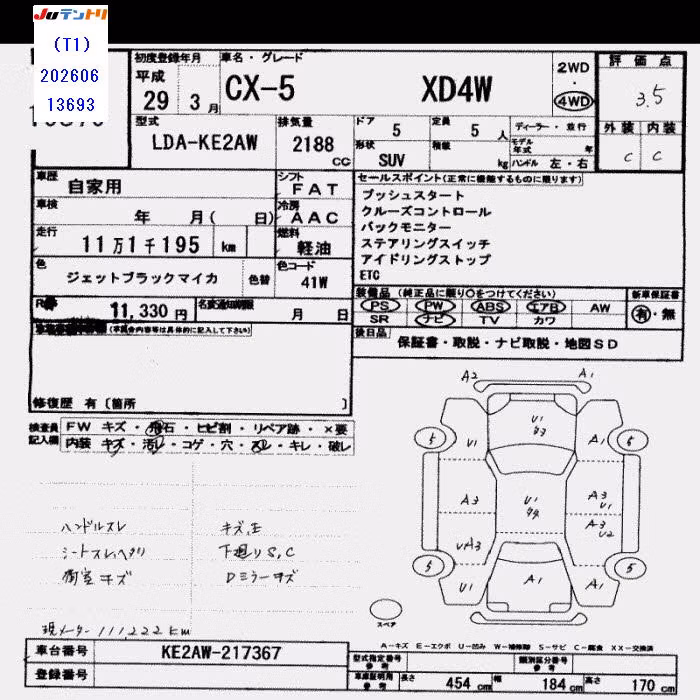 Juテントリ
(T1)
202606
13693
初度登録年月
平成
29年 3月
車名・グレード
CX-5 XD4W
2WD
・
4WD
評価点
3.5
外装 内装
C C
型式
LDA-KE2AW
排気量
2188 CC
ドア 5
定員 5人
形状 SUV
積載 kg
ディーラー・並行
モデル年式 年
ハンドル 左・右
車歴 自家用
シフト FAT
車検 年 月( 日)
冷房 AAC
走行 11万1千195 km
燃料 軽油
色 ジェットブラックマイカ 色替
色コード 41W
11,330円
名変通知期限 月 日
セールスポイント(正常に機能するものに限ります)
プッシュスタート
クルーズコントロール
バックモニター
ステアリングスイッチ
アイドリングストップ
ETC
装備品 (純正品に限り○をつけてください)
PS PW ABS エアB AW
SR ナビ TV カワ
新車保証書
有・無
後日品
保証書・取説・ナビ取説・地図SD
修復歴 有 [箇所 ]
検査員記入欄
FW キズ・飛石・ヒビ割・リペア跡・×要
内装 キズ・汚レ・コゲ・穴・スレ・キレ・破レ
ハンドルスレ
シートスレ、ヘタリ
荷室キズ
キズ、凹
下廻りS,C
Dミラーキズ
現メーター 111,222km
A2 A1
U1
5 U1 A1 5
A3 U1 A3 U1
A3 U2
UA3
5 U1 A1 A1 5
スペア
A-キズ E-エクボ U-凹み W-補修跡 S-サビ C-腐食 XX-交換済
車台番号 KE2AW-217367
登録番号
型式指定番号 参考
類別区分番号 参考
車庫証明用 参考
長さ 454cm 幅 184cm 高さ 170cm